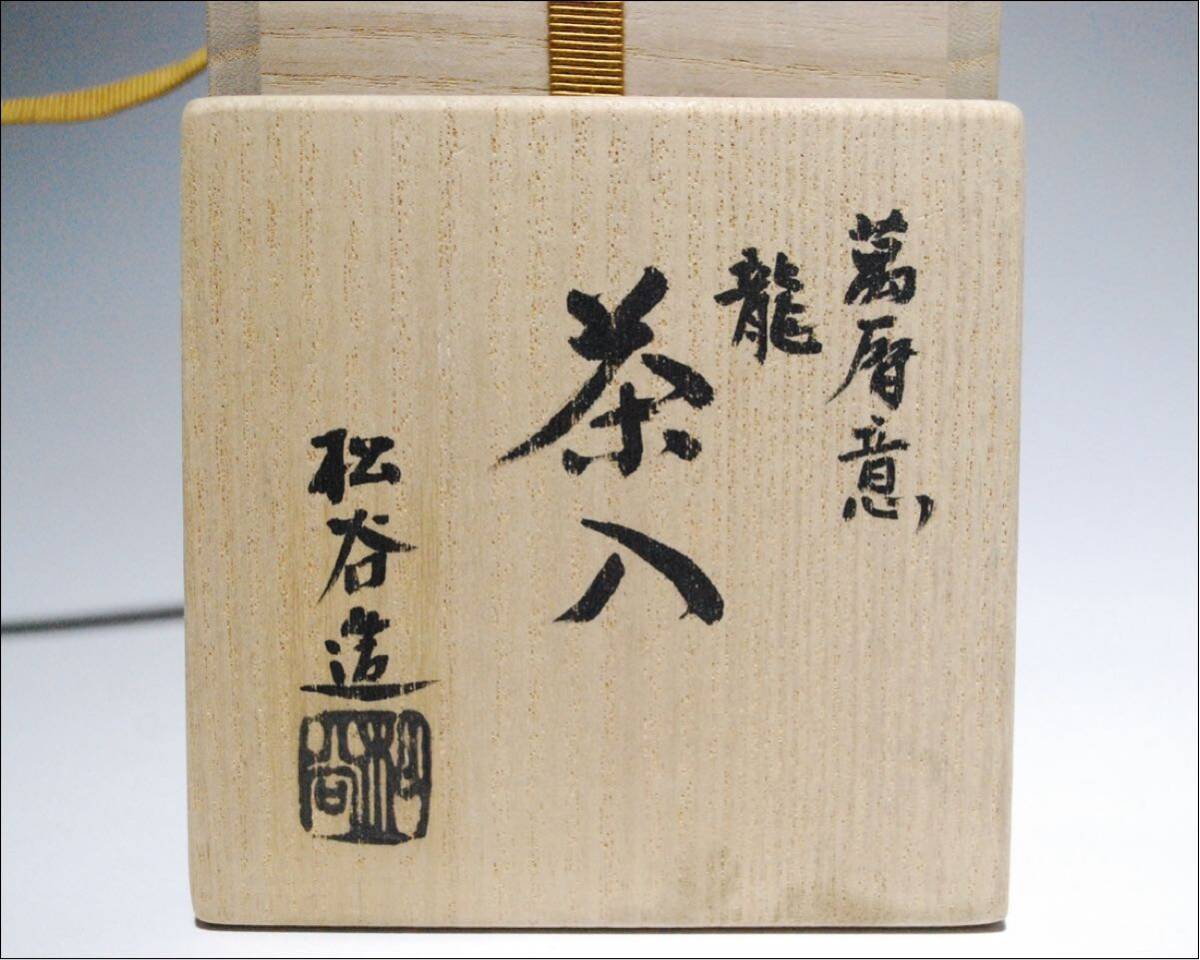 萬暦意
龍
茶入
松谷造
松谷